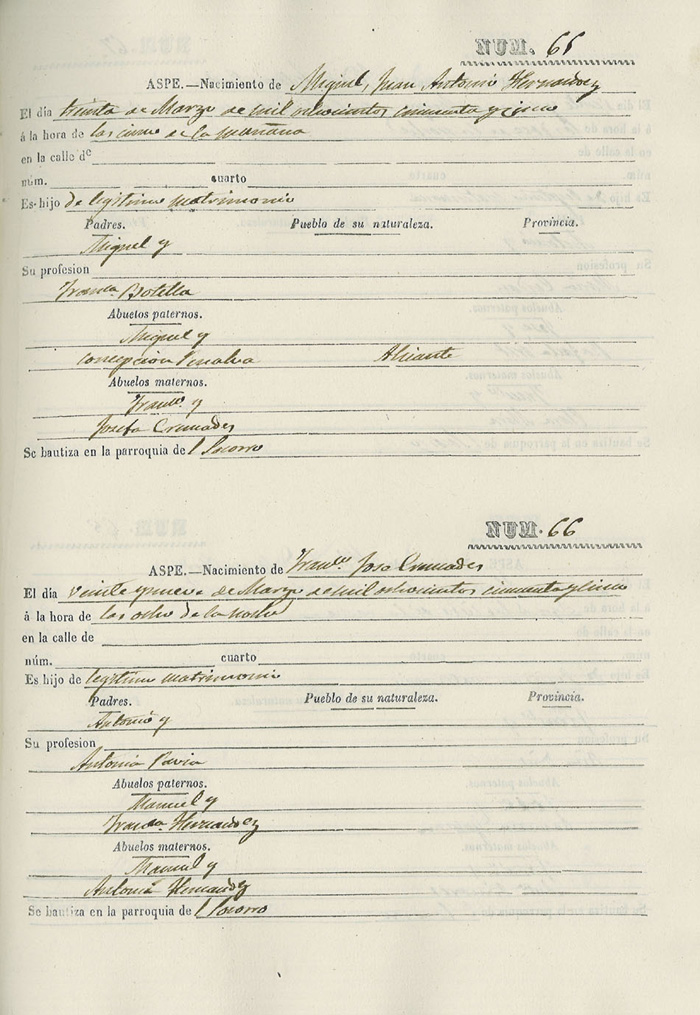 NUM. 66
ASPE.—Nacimiento de Miguel, Juan Antonio Hernandez
El día treinta de Marzo de mil ochocientos cincuenta y cinco
á la hora de las cinco de la mañana
en la calle de
núm. cuarto
Es hijo de legitimo matrimonio
Padres. Pueblo de su naturaleza. Provincia.
Miguel y
Su profesion
Franca Botella
Abuelos paternos.
Miguel y
Concepcion Penalva Alicante
Abuelos maternos.
Franco y
Josefa Cremades
Se bautiza en la parroquia del Socorro
NUM. 66
ASPE.—Nacimiento de Franco Jose Cremades
El día veinte y nueve de Marzo de mil ochocientos cincuenta y cinco
á la hora de las ocho de la noche
en la calle de
núm. cuarto
Es hijo de legitimo matrimonio
Padres. Pueblo de su naturaleza. Provincia.
Antonio y
Su profesion
Antonia Pavia
Abuelos paternos.
Manuel y
Franca Hernandez
Abuelos maternos.
Manuel y
Antonia Hernandez
Se bautiza en la parroquia del Socorro